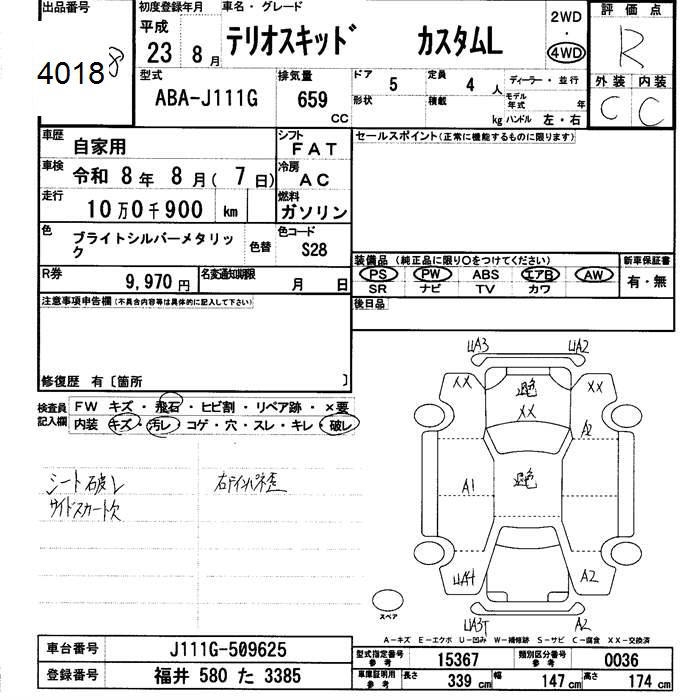 出品番号
40188
初度登録年月
平成
23 8 月
車名・グレード
テリオスキッド カスタムL
2WD
・
4WD
評価点
R
外装 内装
C C
型式
ABA-J111G
排気量
659
CC
ドア 5
定員 4 人
形状
積載 kg
ディーラー・並行
モデル年式 年
ハンドル 左・右
車歴 自家用
シフト FAT
セールスポイント(正常に機能するものに限ります)
車検 令和 8 年 8 月( 7 日)
冷房 AC
走行 10万0千900 km
燃料 ガソリン
色 ブライトシルバーメタリック
色替
色コード S28
装備品 (純正品に限り○をつけてください)
新車保証書
PS PW ABS エアB AW
有・無
SR ナビ TV カワ
R券 9,970 円
名変通知期限 月 日
後日品
注意事項申告欄(不具合内容等は具体的に記入して下さい)
修復歴 有〔箇所 〕
検査員記入欄
FW キズ・飛石・ヒビ割・リペア跡・×要
内装 キズ・汚レ・コゲ・穴・スレ・キレ・破レ
シート破レ
サイドスカート欠
UA3 UA2
XX XX
退色
XX
A2
A1
退色
UA4 A2
UA3T A2
スペア
A-キズ E-エクボ U-凹み W-補修跡 S-サビ C-腐食 XX-交換済
車台番号 J111G-509625
登録番号 福井 580 た 3385
型式指定番号 参考 15367
類別区分番号 参考 0036
車庫証明用 参考
長さ 339 cm
幅 147 cm
高さ 174 cm